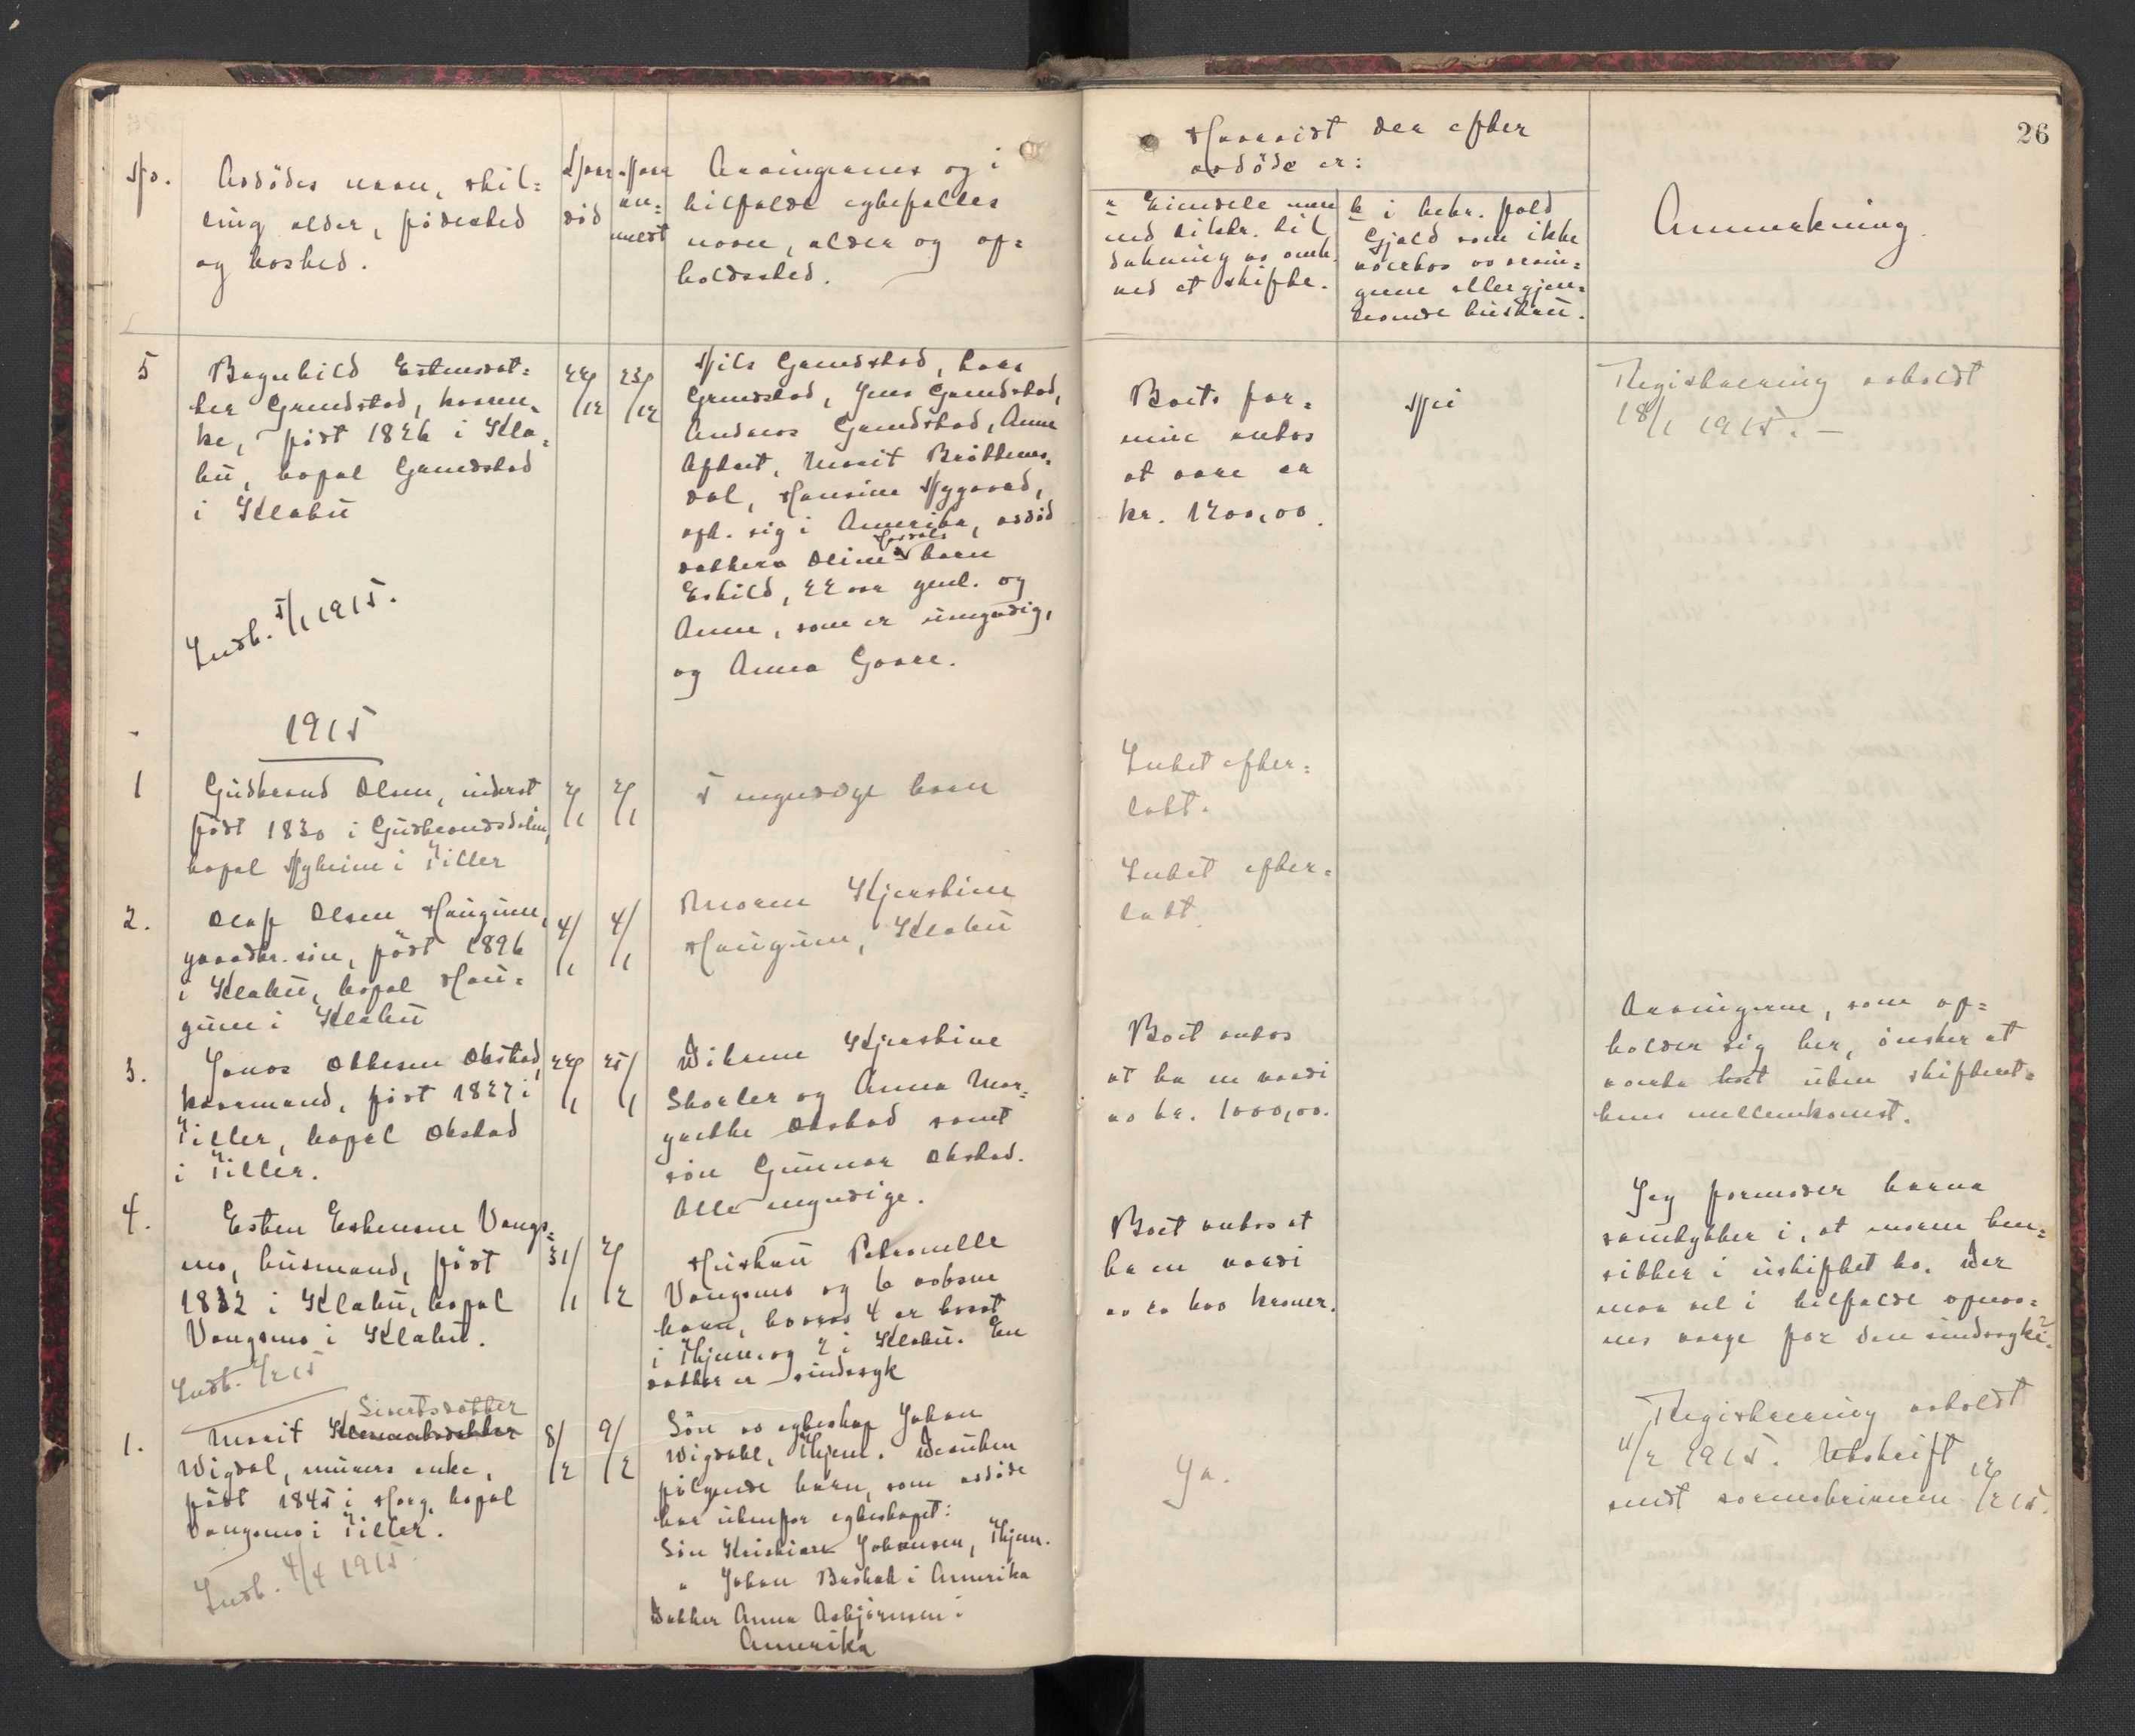 26
No.
Avdødes navn, stil-
ling alder, fødested
og bosted.
Naar
død
Naar
an-
meldt
Arvingernes og i
tilfælde egtefælles
navn, alder og op-
holdssted.
Hvorvidt der efter
avdøde er:
a Eiendele mere
end tilstr. til
dækning av omk.
ved et skifte.
b i bekr. fald
Gjæld som ikke
overtas av arvin-
gene eller gjen-
levende hustru.
Anmerkning.
5
Ragnhild Estensdat-
ter Grendstad, kaaren-
ke, født 1826 i Klæ-
bu, bopæl Grendstad
i Klæbu
Indb. 5/1 1915.
22/12
23/12
Nils Grendstad, Lars
Grendstad, Jens Grendstad,
Anders Grendstad, Anne
Aftret, Marit Brøttems-
dal, Hansine Nygaard,
oph. sig i Amerika, avdød
datters Oline barn
Eskild, 22 aar geml. og
Anne, som er umyndig,
og Anna Gaare.
Boets for-
mue antas
at være ca
kr. 1200,00.
Nei
Registrering avholdt
18/1 1915. —
1915
1
Gudbrand Olsen, inderst
født 1830 i Gudbrandsdalen,
bopæl Nyheim i Tiller
2/1
2/1
5 myndige barn
Intet efter-
latt.
2.
Olaf Olsen Haugum,
gaardbr. søn, født 1896
i Klæbu, bopæl Hau-
gum i Klæbu
4/1
4/1
Moren Kjerstine
Haugum, Klæbu
Intet efter-
latt.
3.
Jonas Ottesen Okstad,
kaarmand, født 1827 i
Tiller, bopæl Okstad
i Tiller.
22/1
25/1
Døtrene Kjerstine
Skorler og Anna Mar-
grethe Okstad samt
søn Gunnar Okstad.
Alle myndige.
Boet antas
at ha en værdi
av kr. 1000,00.
Arvingerne, som op-
holder sig her, ønsker at
overta boet uten skifteret-
tens mellemkomst.
4.
Esten Estensen Vangs-
mo, husmand, født
1832 i Klæbu, bopæl
Vangsmo i Klæbu.
Indb. 4/2 15
31/1
2/2
Hustru Petronelle
Vangsmo og 6 voksne
barn, hvorav 4 er bosat
i Thjem. og 2 i Klæbu. En
datter er sindssyk
Boet antas at
ha en værdi
av ca 600 kroner.
Jeg formoder barna
samtykker i, at moren hen-
sitter i uskiftet bo. Der
maa vel i tilfælde opnæv-
nes værge for den sindssyke?
1.
Sivertsdatter
Marit
Wigdal, murers enke,
født 1845 i Horg, bopæl
Vangsmo i Tiller.
Indb. 4/4 1915.
8/2
9/2
Søn av egteskap Johan
Wigdahl, Thjem. Desuten
følgende barn, som avdøde
har utenfor egteskapet:
Søn Kristian Johansen, Thjem.
" Johan Bastad i Amerika
Datter Anna Asbjørnsen i
Amerika
Ja.
Registrering avholdt
11/2 1915. Utskrift
sendt sorenskriveren 12/2 15.